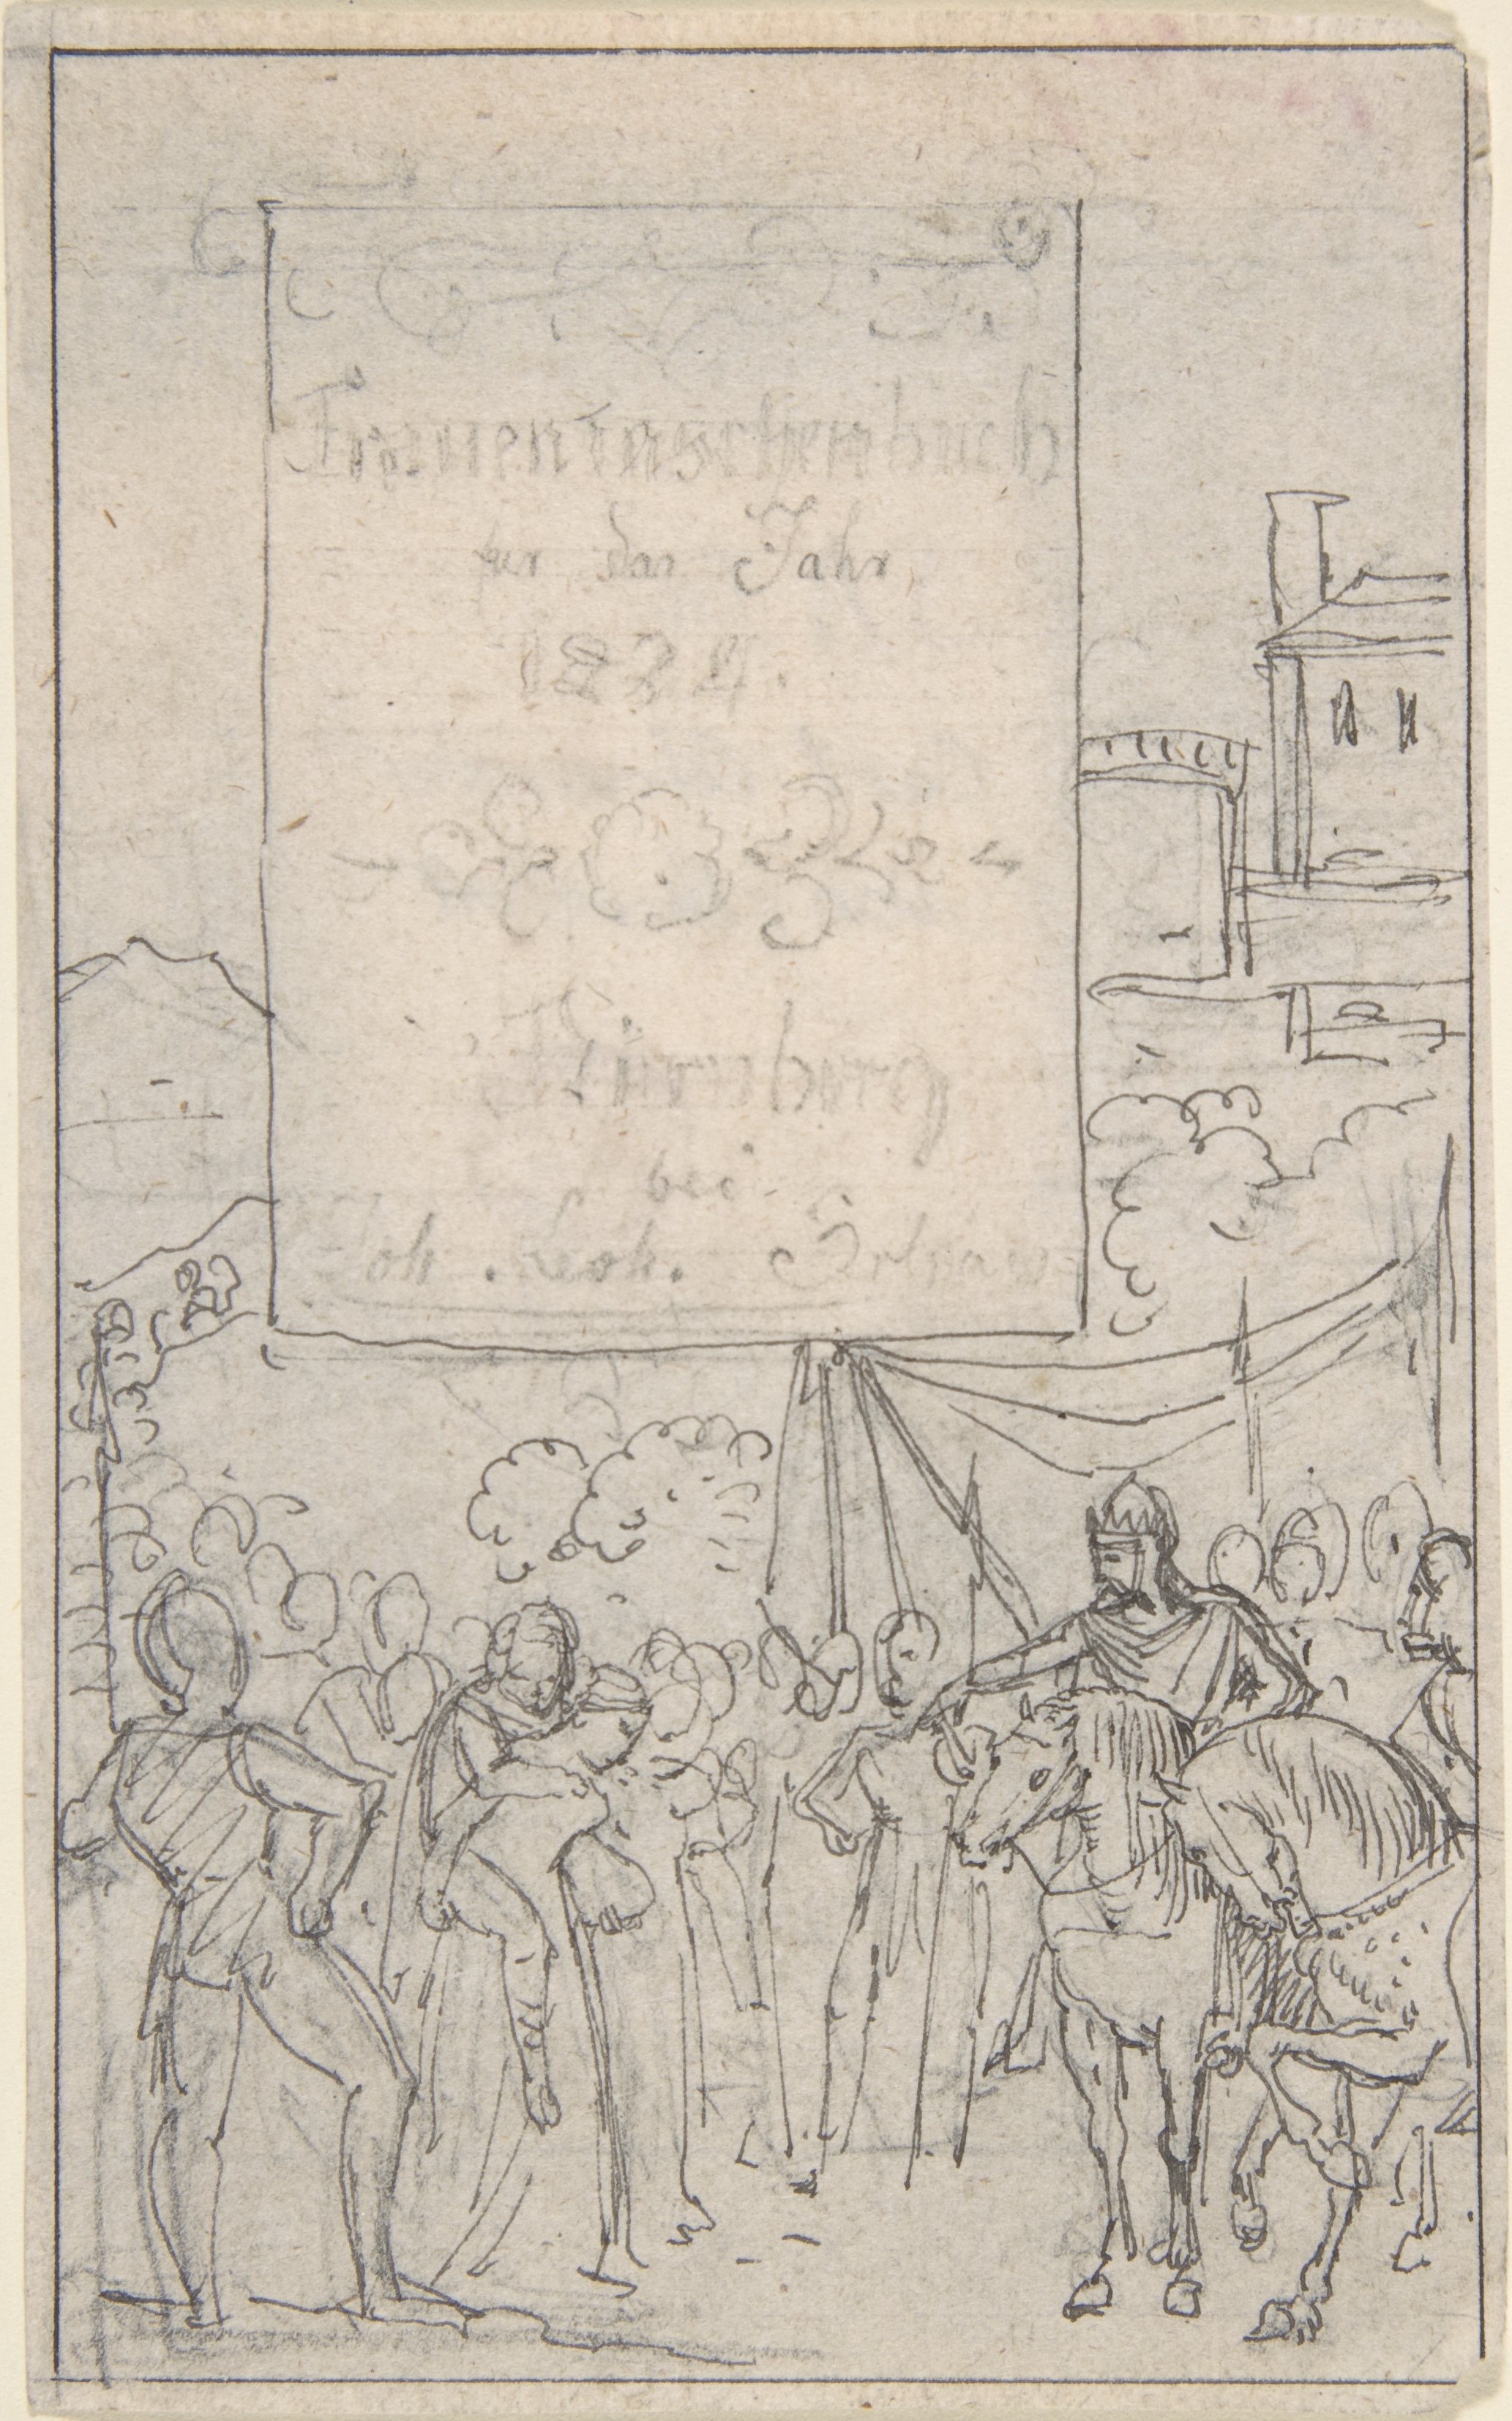 Frauentaschenbuch
für das Jahr
1824.
Nürnberg
bei
Joh. Leoh.